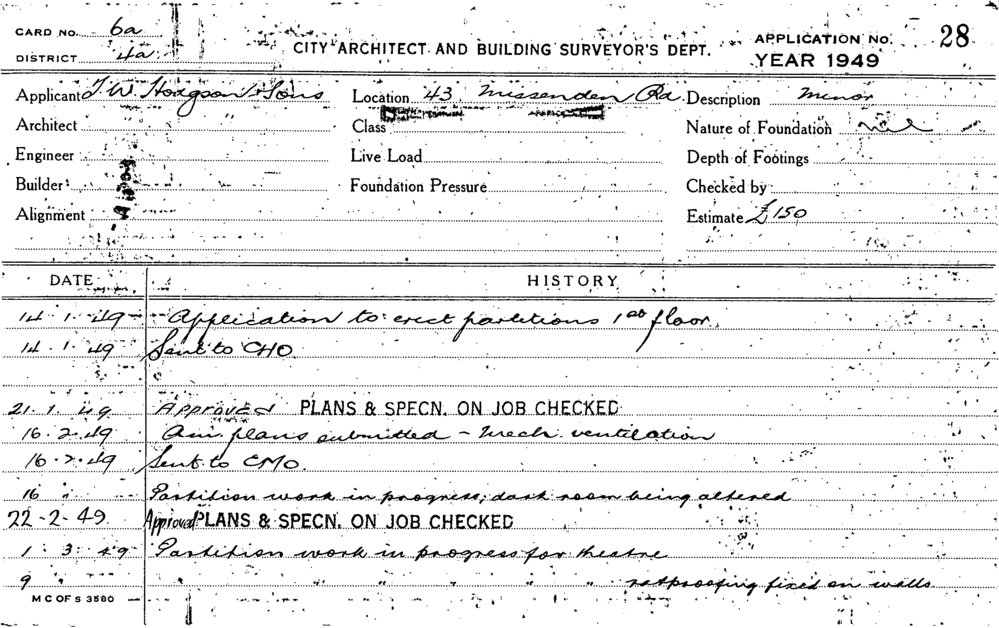 CARD No. 6a
DISTRICT 4a
CITY ARCHITECT AND BUILDING SURVEYOR'S DEPT.
APPLICATION No. 28
YEAR 1949
Applicant T. W. Hodgson & Sons Location 43 Missenden Rd. Description Minor
Architect Class Nature of Foundation
Engineer Live Load Depth of Footings
Builder Foundation Pressure Checked by
Alignment Estimate £150
DATE HISTORY
14.1.49 Application to erect partitions 1st floor.
14.1.49 Sent to CHO.
21.1.49 Approved PLANS & SPECN. ON JOB CHECKED
16.2.49 Am. plans submitted - Mech. ventilation
16.2.49 Sent to CMO.
16 " Partition work in progress; dark room being altered
22-2-49 Approved PLANS & SPECN. ON JOB CHECKED
1.3.49 Partition work in progress for theatre
9 " " " " " " ratproofing fixed on walls
M C OF S 3580